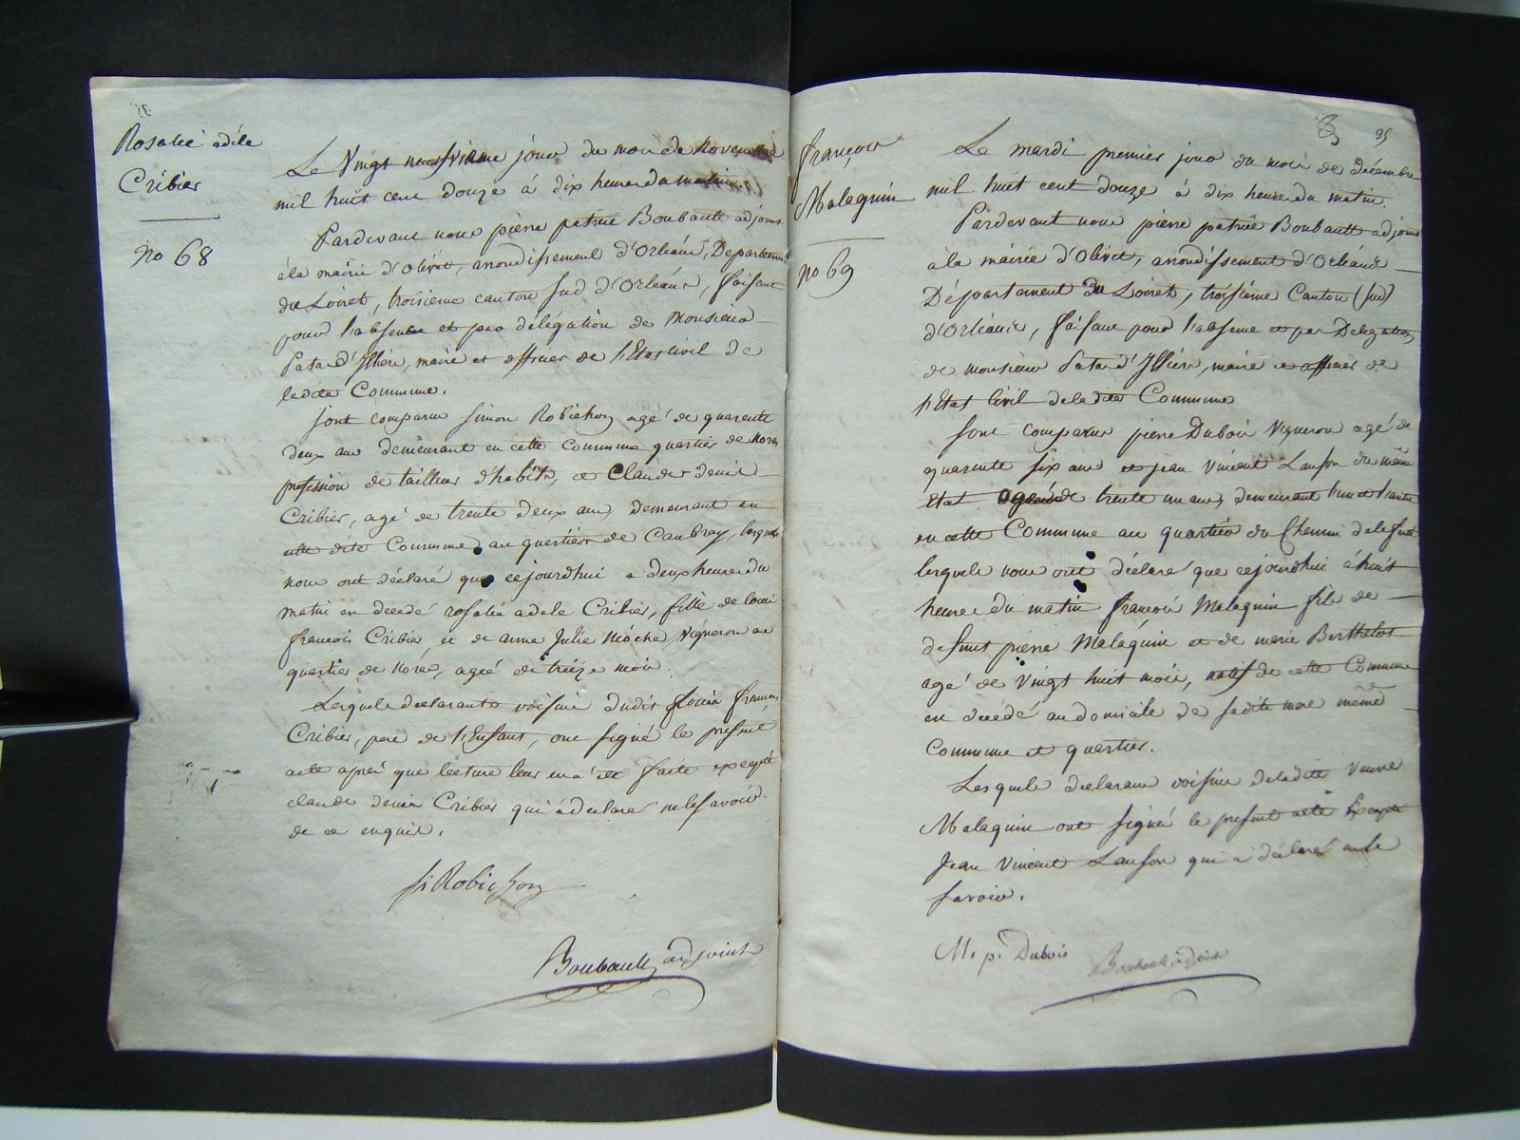 Rosalie adèle
Cribier
no 68
Le Vingt neufvieme jour du mois de Novembre
mil huit cent douze à dix heures du matin.
Pardevant nous pierre patrice Boubault adjoint
à la mairie d'Olivet, arrondissement d'Orléans, Departement
du Loiret, troisieme canton sud d'Orléans, faisant
pour l'absence et par délégation de Monsieur
Pata d'Illiers, maire et officier de l'Etat civil de
ladite Commune.
Sont comparus Simon Robichon agé de quarente
deux ans demeurant en cette Commune quartier de
profession de tailleur d'habits, et Claude denis
Cribier, agé de trente deux ans, demeurant en
cette dite Commune au quartier de Caubray, lesquels
nous ont déclaré que cejourdhui a deux heures du
matin en décédé rosalie adele Cribier, fille de louis
françois Cribier, et de anne Julie vigneron au
quartier de agée de treize mois.
Lesquels déclarants voisins dudit Louis françois
Cribier, pere de l'Enfant, ont signé le présent
acte après que lecture leur en a été faite excepté
claude denis Cribier qui a déclaré ne le savoir
de ce enquis.
si Robichon
Boubault adjoint
95
françois
Malaquin
no 69
Le mardi premier jour du mois de décembre
mil huit cent douze à dix heures du matin.
Pardevant nous pierre patrice Boubault adjoint
à la mairie d'Olivet, arrondissement d'Orléans
Département du Loiret, troisième Canton (sud)
d'Orléans, faisant pour l'absence et par Délégation
de monsieur Pata d'Illiers, maire et officier de
l'Etat Civil de ladite Commune
Sont comparus pierre Dubois Vigneron agé de
quarente six ans et jean vincent Lanson du même
Etat agé de trente un ans, demeurant l'un et l'autre
en cette Commune au quartier du Chemin de la
lesquels nous ont déclaré que cejourdhui à huit
heures du matin françois Malaquin fils de
defunt pierre Malaquin et de marie Berthelot
agé de vingt huit mois, natif de cette Commune
en décédé au domicile de sadite mere même
Commune et quartier.
Lesquels déclarans voisins de ladite veuve
Malaquin ont signé le présent acte Excepté
Jean Vincent Lanson qui a déclaré ne le
savoir.
M. p. Dubois
Boubault adjoint